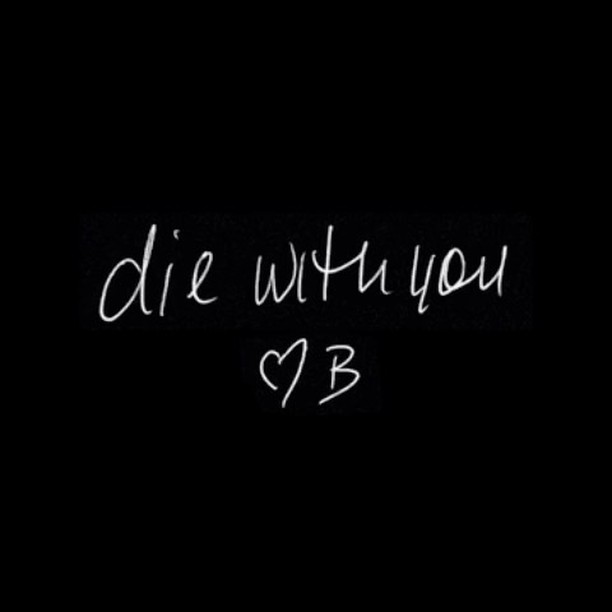 die with you
♡ B